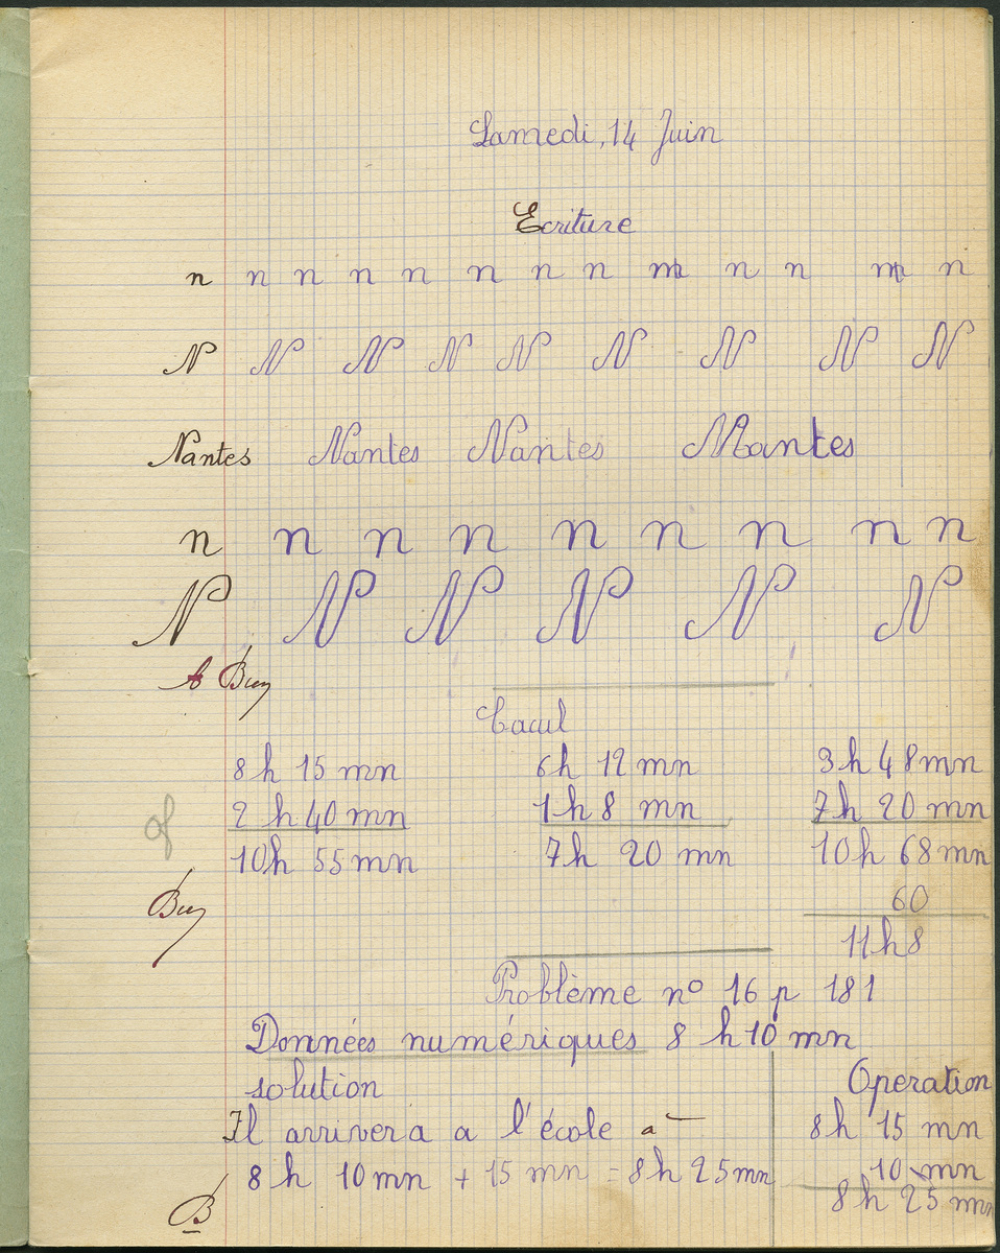 Samedi, 14 Juin
Ecriture
n n n n n n n n m n n m n
N N N N N N N N N
Nantes Nantes Nantes Mantes
n n n n n n n n n
N N N N N N
Cacul
8h 15 mn 6h 12 mn 3h 48mn
2 h 40 mn 1h 8 mn 7h 20 mn
10h 55 mn 7h 20 mn 10h 68mn
60
11h8
Problème no 16 p 181
Données numériques 8 h 10 mn
solution Operation
Il arrivera a l'école a 8h 15 mn
8 h 10 mn + 15 mn = 8h 25mn 10 mn
8h 25 mn
B